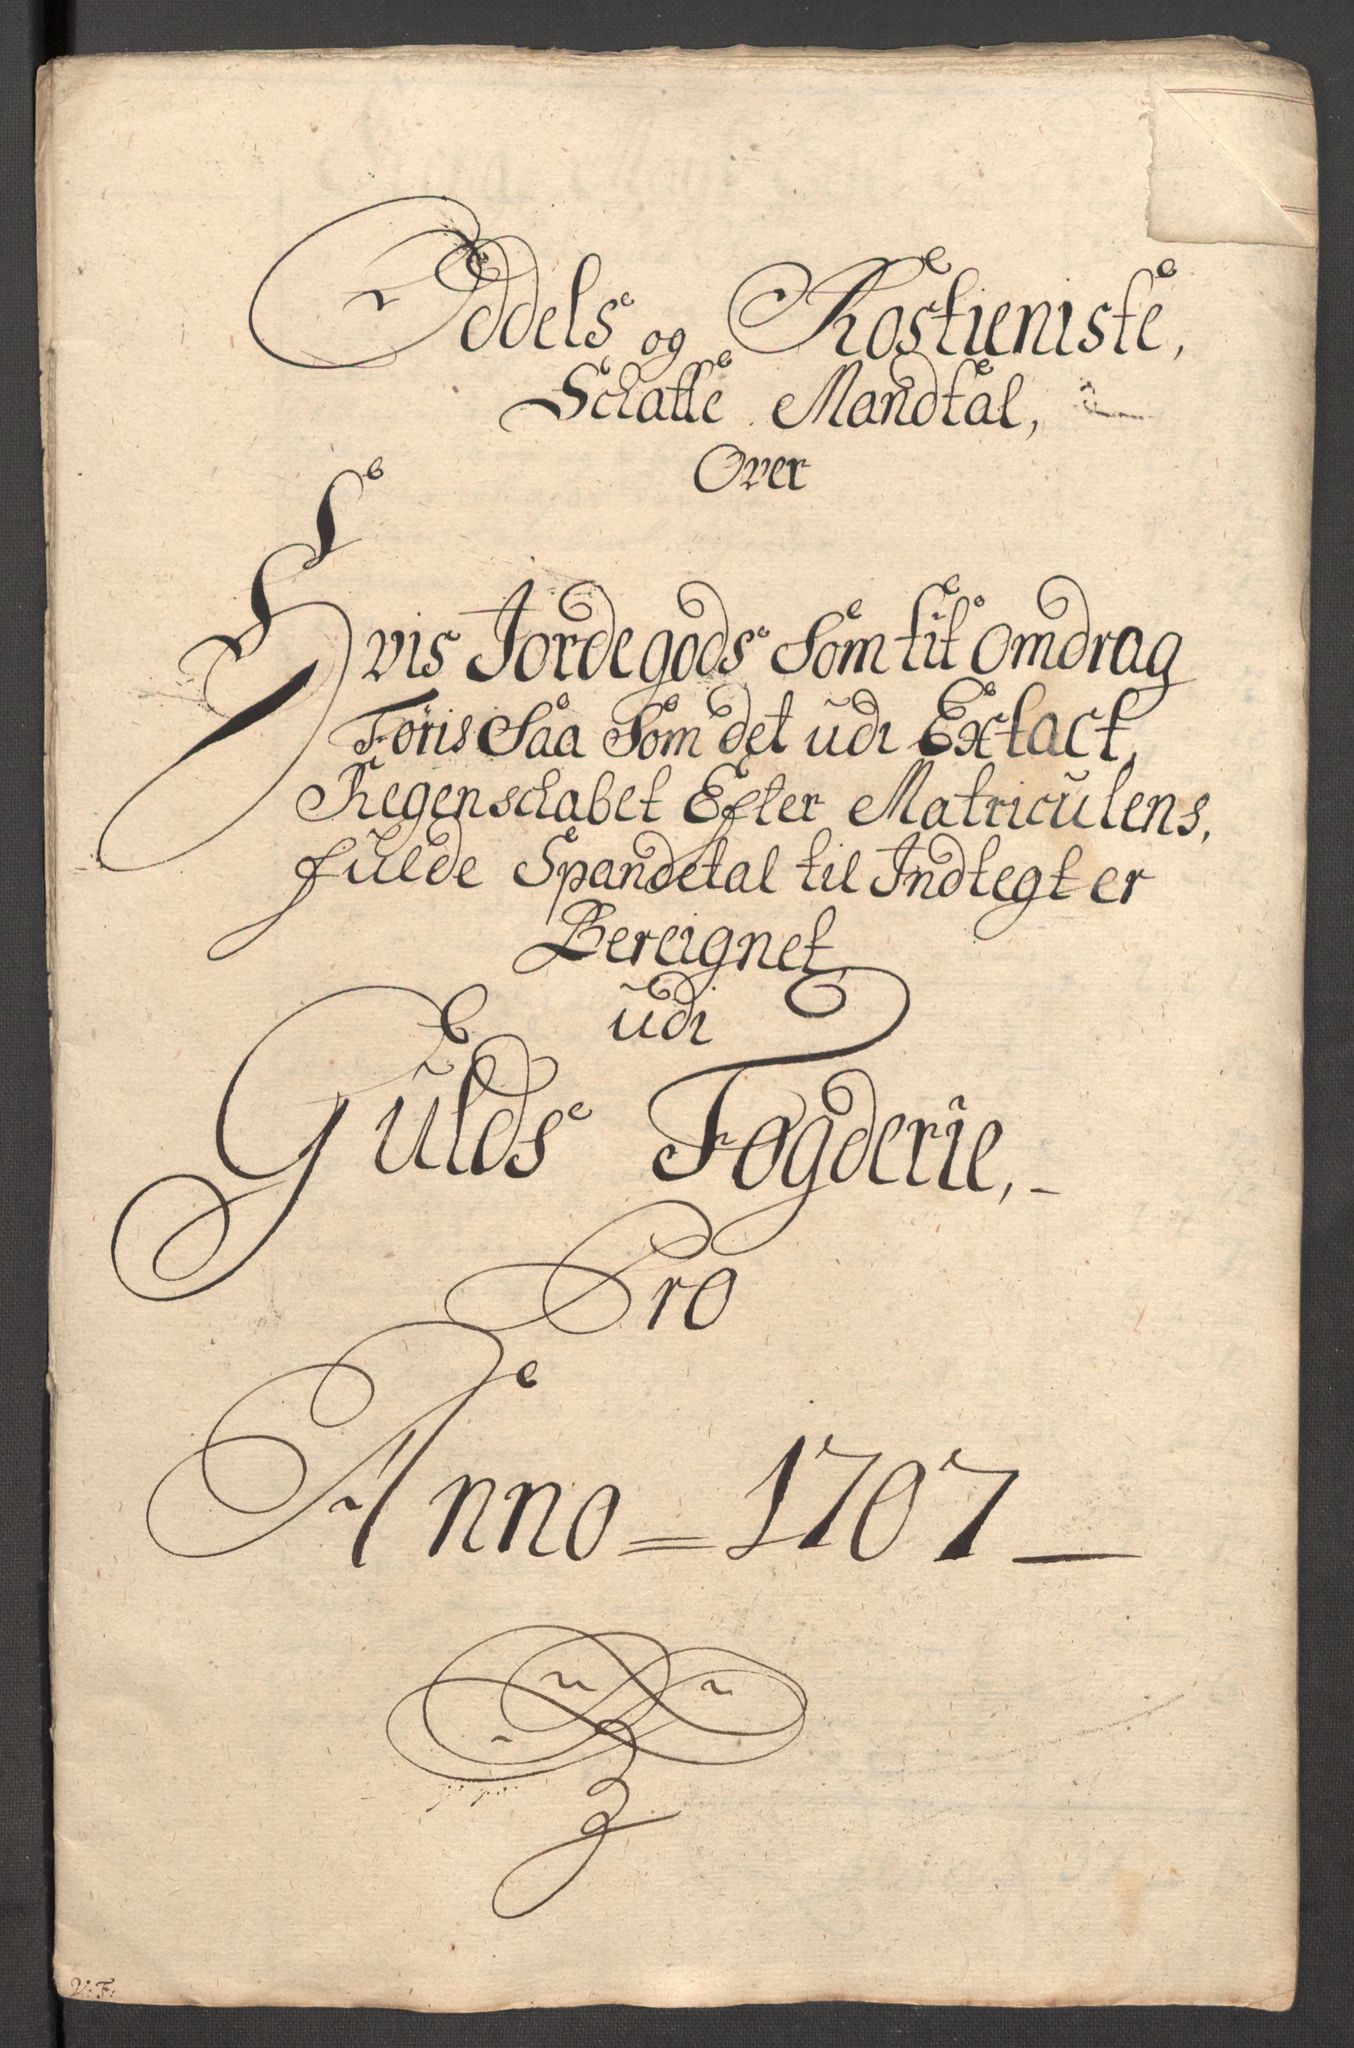 Oddels og Rostieniste,
Schatte Mandtal,
Over
Hvis Jordegods Som til Omdrag
Føris Saa Som det udi Extact,
Regenschabet Efter Matriculens,
fulde Spandetal til Indtegt er
Bereignet,
udi
Gulds Fogderie,
Pro
Anno = 1707